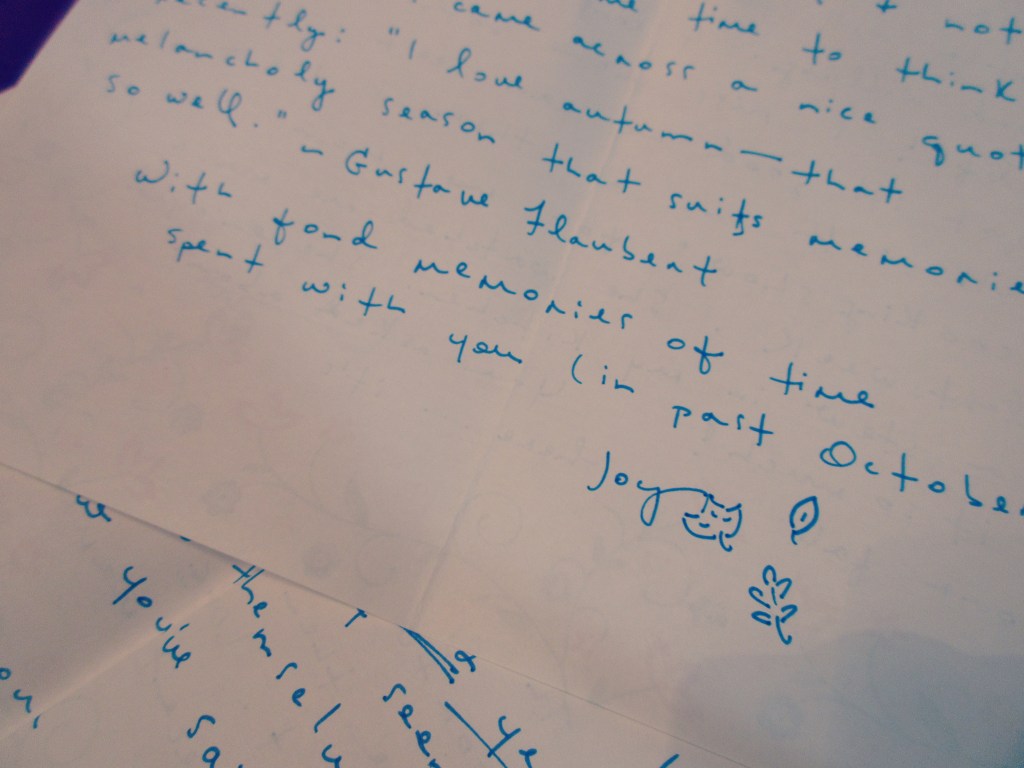 time to think
came across a nice quot
recently: "I love autumn—that
melancholy season that suits memorie
so well." ~ Gustave Flaubert
With fond memories of time
spent with you (in past October
Joy
You've
themselv
seem
sa
ye